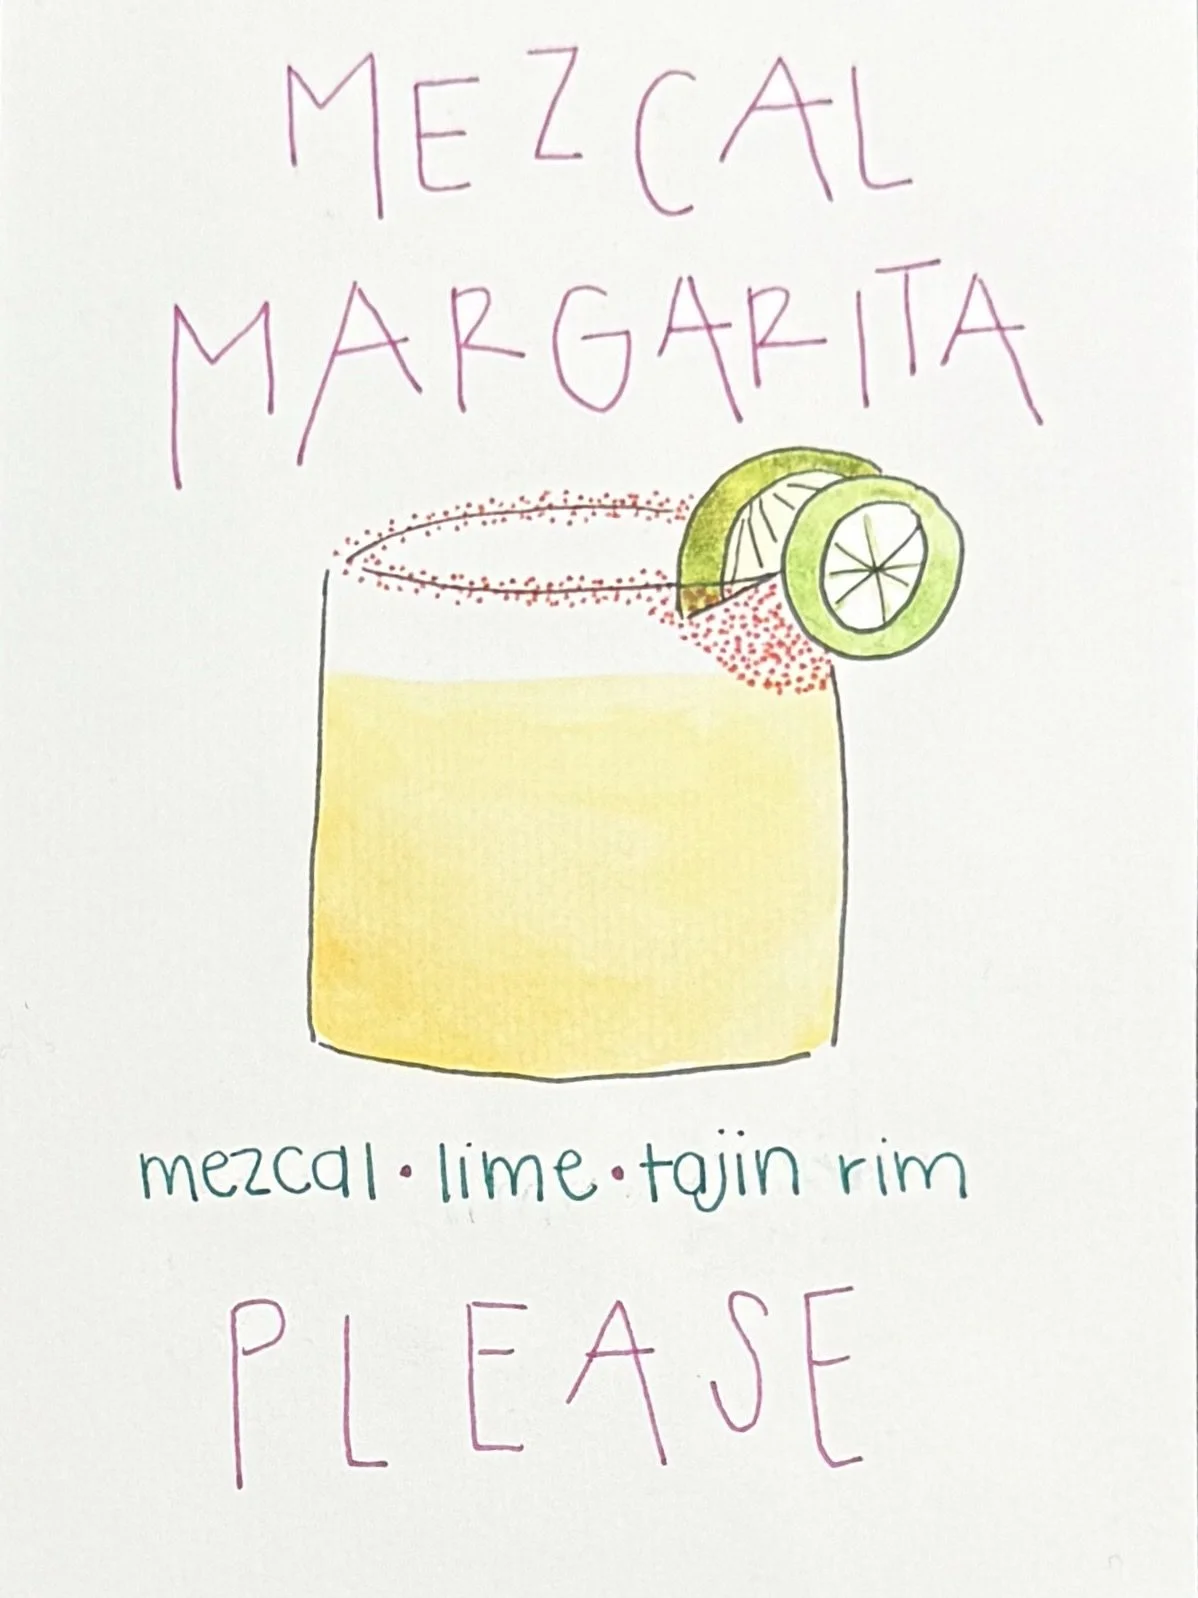 MEZCAL
MARGARITA
mezcal • lime • tajin rim
PLEASE